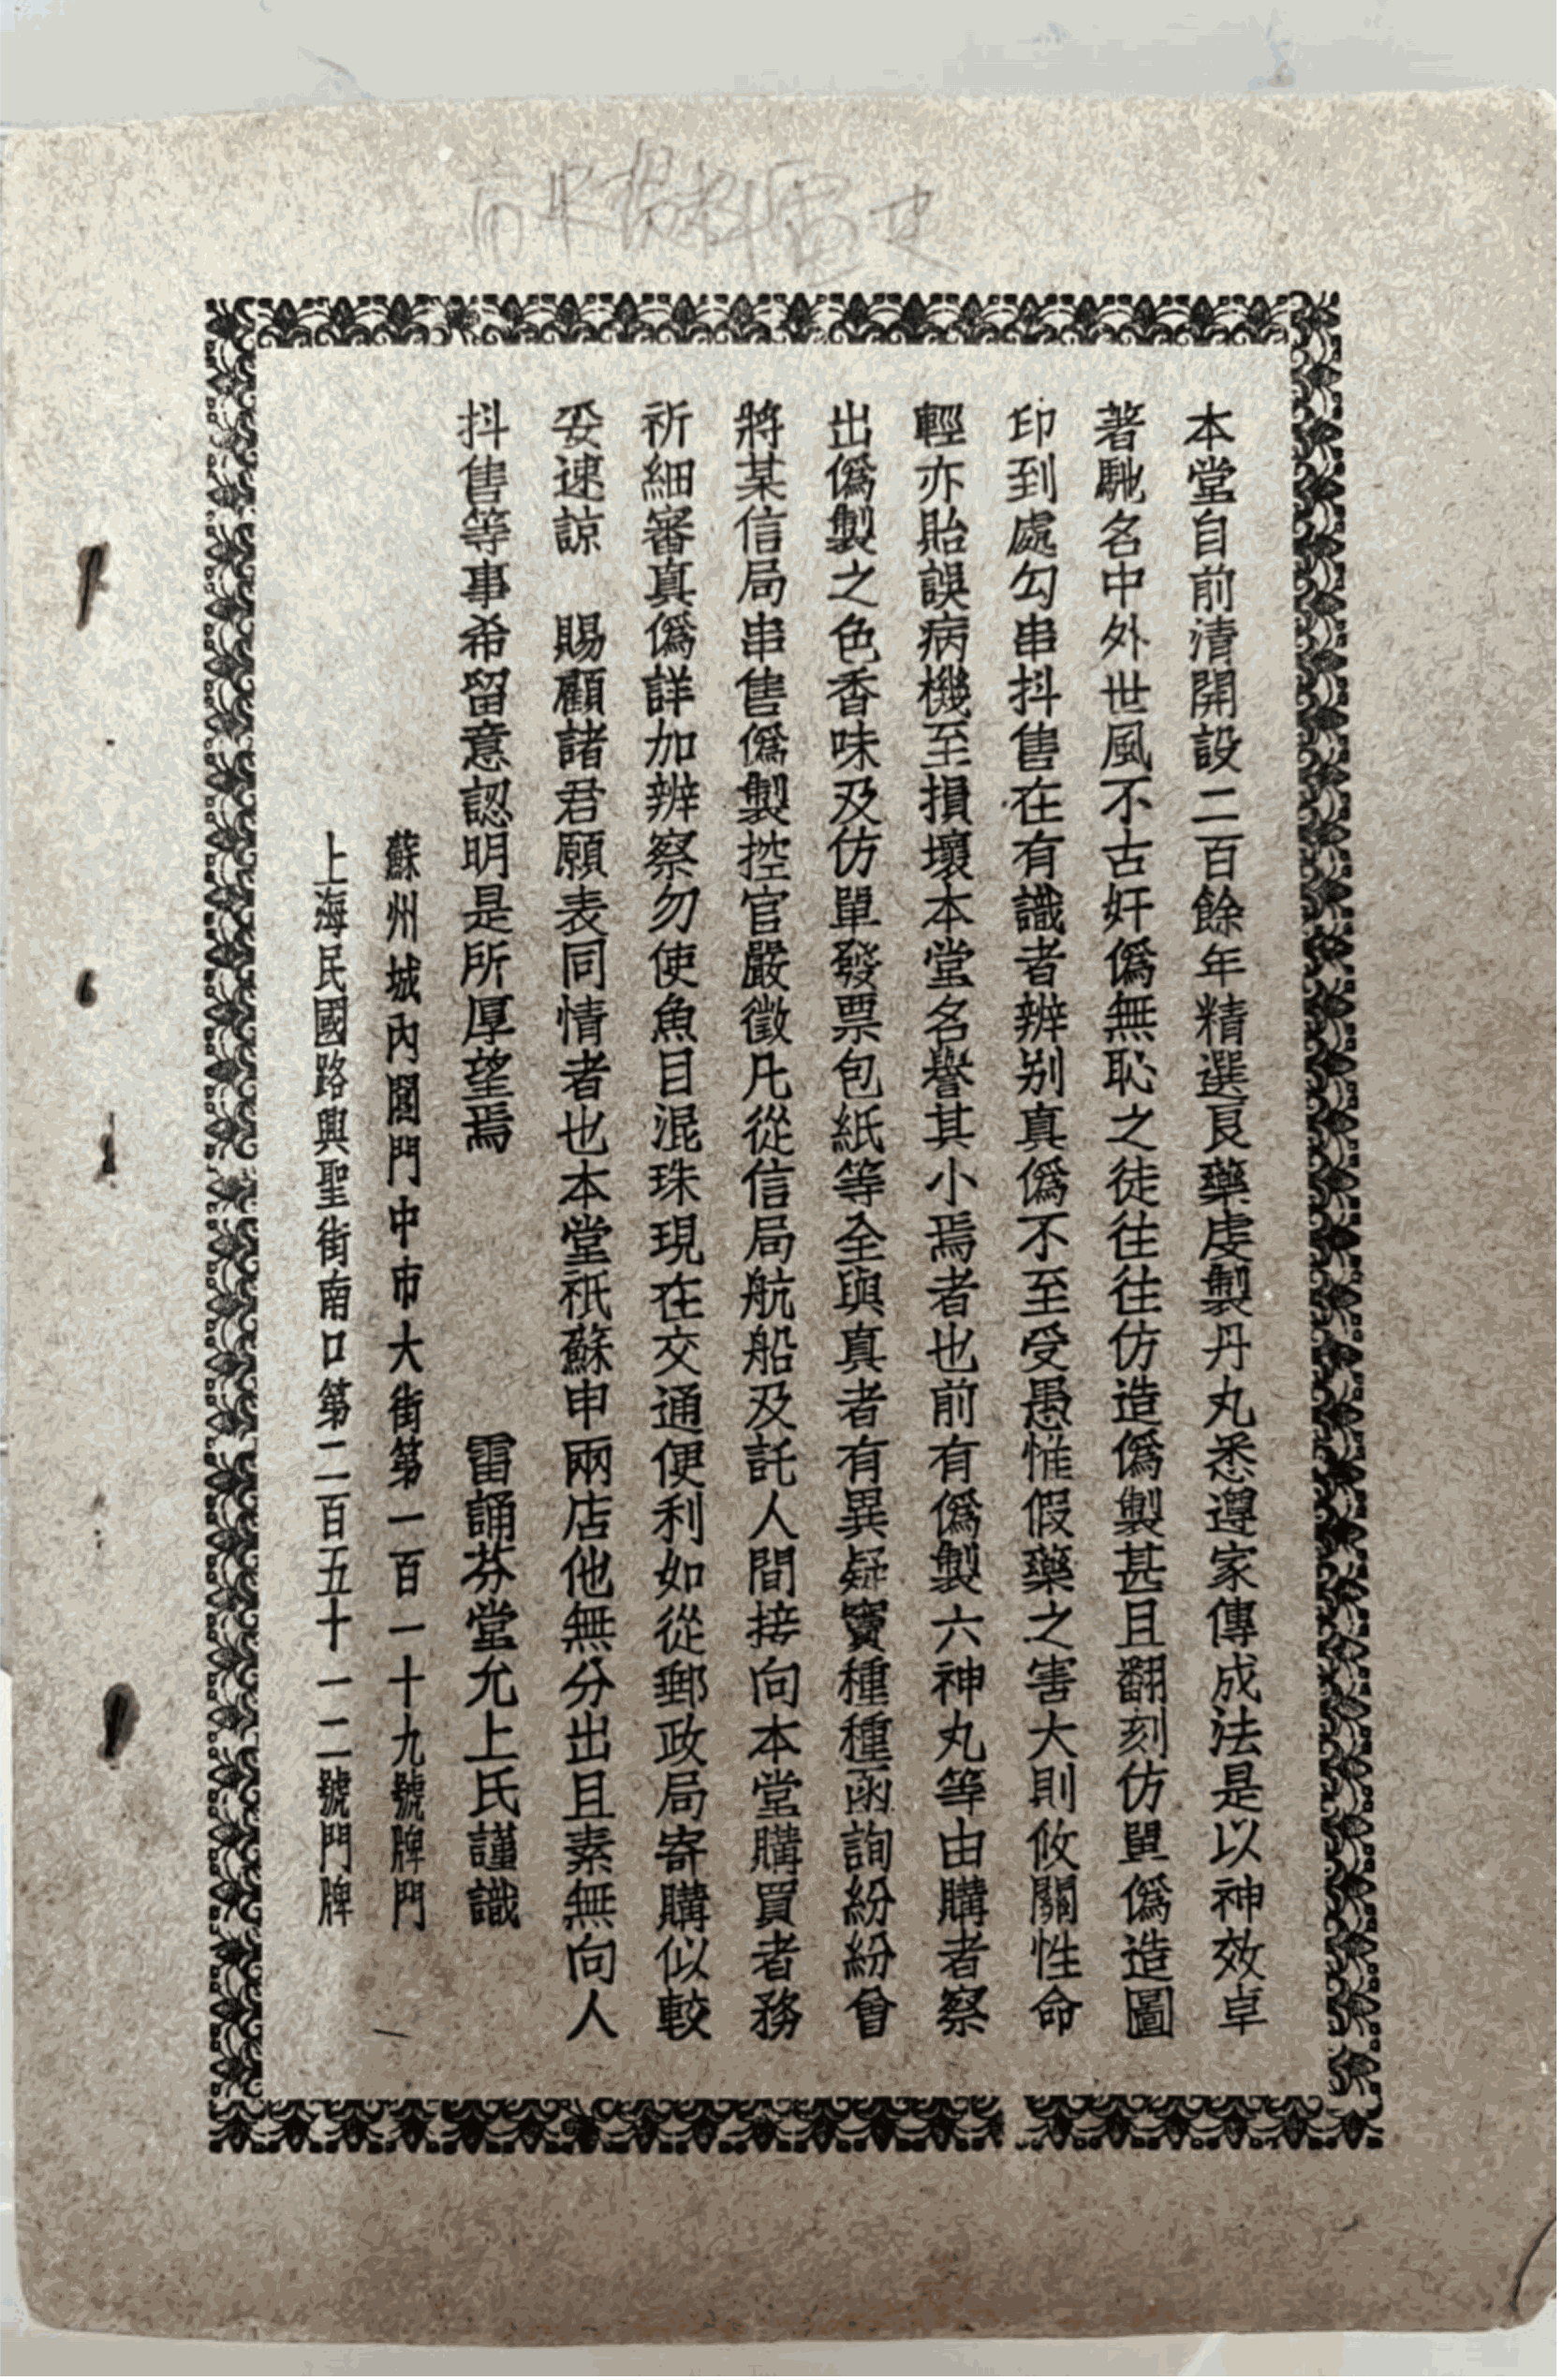 本堂自前清開設二百餘年精選良藥虔製丹丸悉遵家傳成法是以神效卓
著馳名中外世風不古奸僞無恥之徒往往仿造僞製甚且翻刻仿單僞造圖
印到處勾串抖售在有識者辨别真僞不至受愚惟假藥之害大則攸關性命
輕亦貽誤病機至損壞本堂名譽其小焉者也前有僞製六神丸等由購者察
出僞製之色香味及仿單發票包紙等全與真者有異疑竇種種函詢紛紛曾
將某信局串售僞製控官嚴徵凡從信局航船及託人間接向本堂購買者務
祈細審真僞詳加辨察勿使魚目混珠現在交通便利如從郵政局寄購似較
妥速諒 賜顧諸君願表同情者也本堂祇蘇申兩店他無分出且素無向人
抖售等事希留意認明是所厚望焉 雷誦芬堂允上氏謹識
蘇州城內閶門中市大街第一百一十九號牌門
上海民國路興聖街南口第二百五十一二號門牌